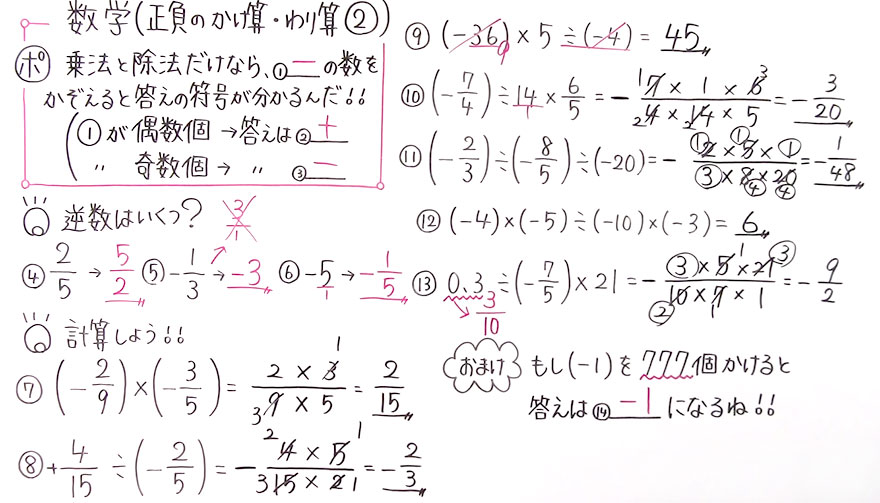 数学(正負のかけ算・わり算②)
ポ 乗法と除法だけなら、①－の数を
かぞえると答えの符号が分かるんだ!!
(①が偶数個→答えは②＋
〃 奇数個→ 〃 ③－
逆数はいくつ? 3/1
④ 2/5 → 5/2 ⑤ -1/3 → -3 ⑥ -5/1 → -1/5
計算しよう!!
⑦ (-2/9)×(-3/5) = 2×3/9×5 = 2/15
⑧ +4/15 ÷(-2/5) = -4×5/15×2 = -2/3
⑨ (-36)×5÷(-4) = 45
⑩ (-7/4)÷14×6/5 = -7×1×6/4×14×5 = -3/20
⑪ (-2/3)÷(-8/5)÷(-20) = -2×5×1/3×8×20 = -1/48
⑫ (-4)×(-5)÷(-10)×(-3) = 6
⑬ 0.3÷(-7/5)×21 = -3×5×21/10×7×1 = -9/2
3/10
おまけ もし(-1)を777個かけると
答えは⑭-1になるね!!